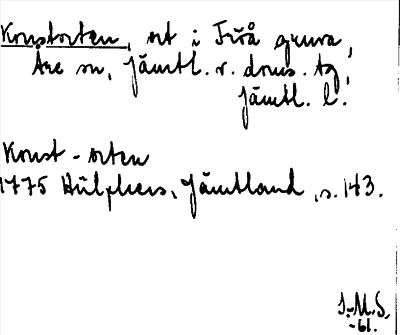 Konstorten, ort i Fröå gruva,
Åre sn, Jämtl. v. doms. tg,
Jämtl. l.
Konst-orten
1775 Hülphers, Jämtland, s. 143.
I.M.S.
-61.